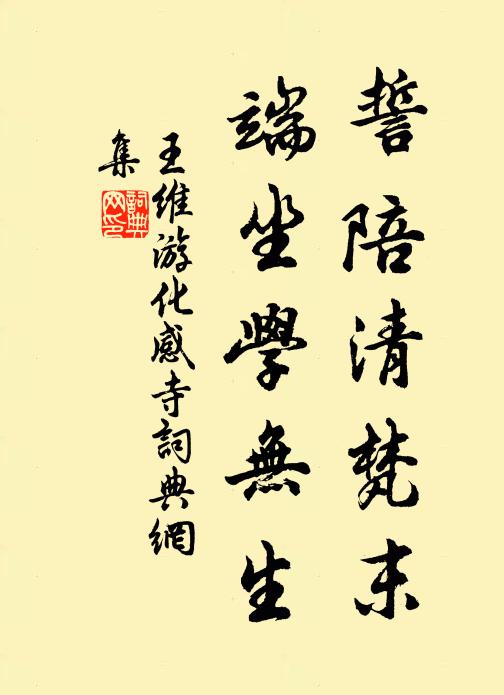 誓陪清梵末
端坐學無生
王維游化感寺詞典網
集
詞典
网印